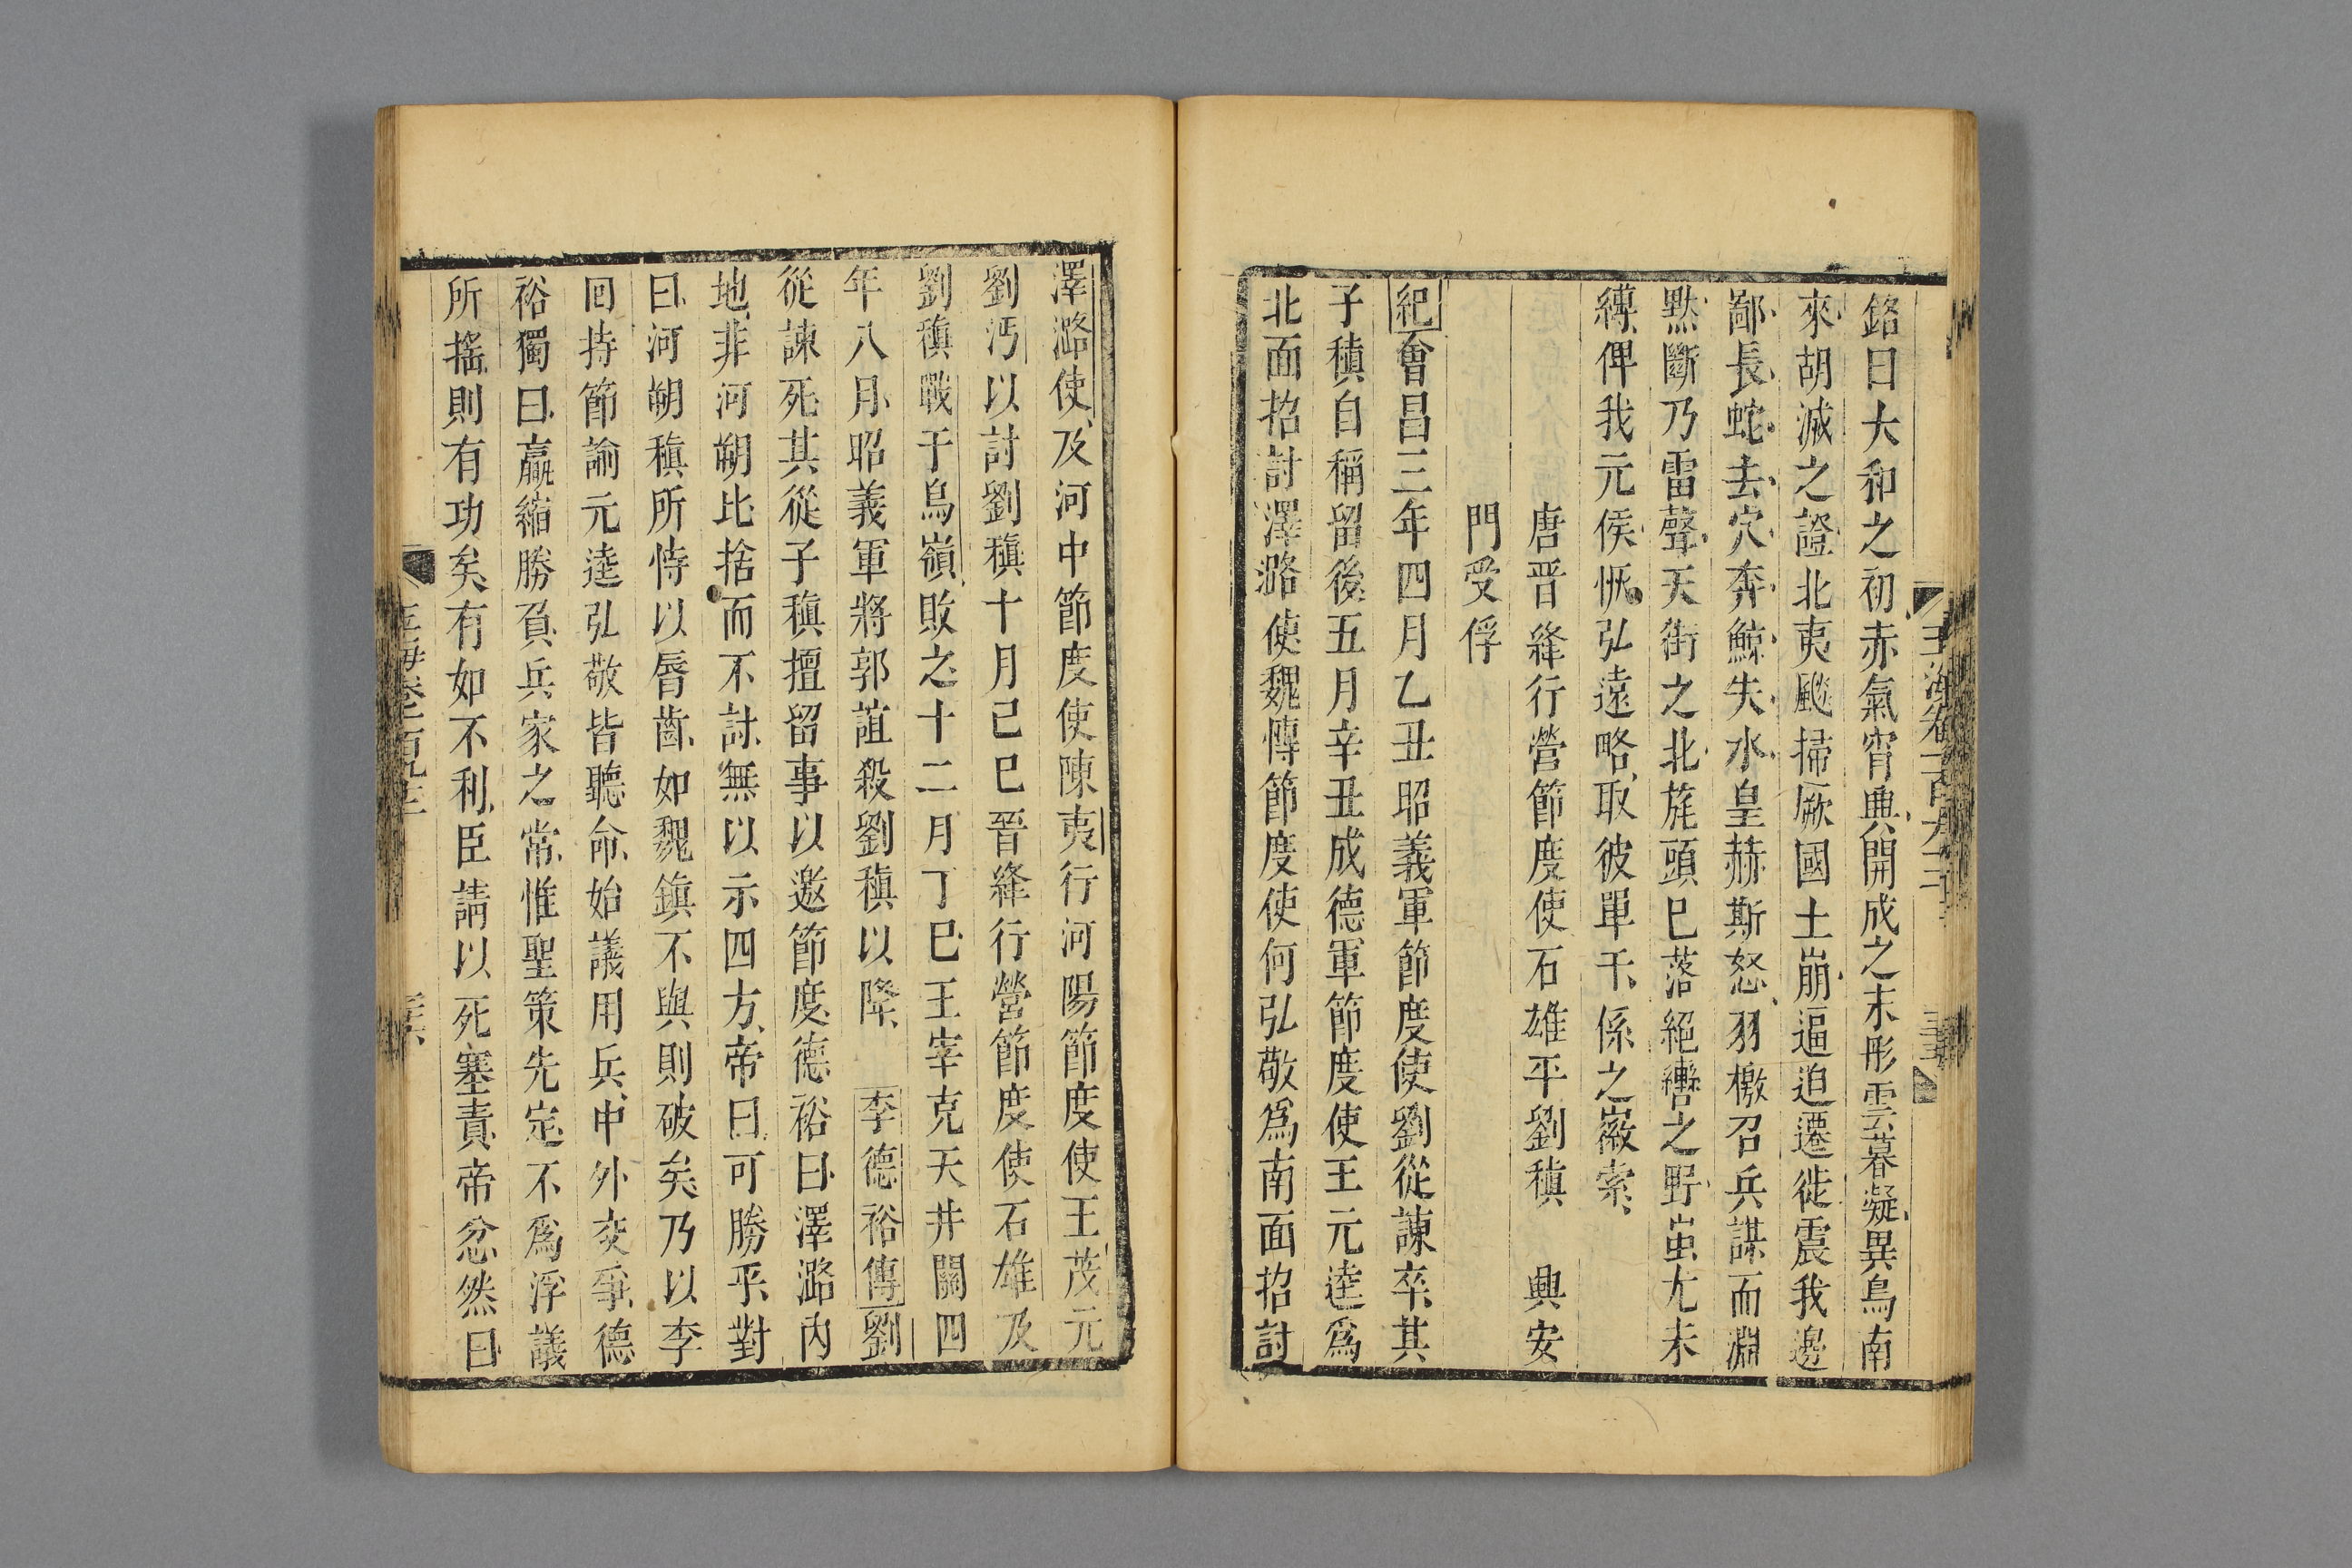 銘曰大和之初赤氣宵興開成之末彤雲暮凝異鳥南
來胡滅之證北夷飈掃厥國土崩逼迫遷徙震我邊
鄙長蛇去穴奔鯨失水皇赫斯怒羽檄召兵謀而淵
默斷乃雷聲天街之北旄頭已落絕轡之野蚩尤未
縛俾我元侯恢弘遠略取彼單于係之徽索
唐晉絳行營節度使石雄平劉稹　興安
門受俘
紀會昌三年四月乙丑昭義軍節度使劉從諫卒其
子稹自稱留後五月辛丑成德軍節度使王元逵爲
北面招討澤潞使魏慱節度使何弘敬爲南面招討
澤潞使及河中節度使陳夷行河陽節度使王茂元
劉沔以討劉稹十月己巳晉絳行營節度使石雄及
劉稹戰于烏嶺敗之十二月丁巳王宰克天井關四
年八月昭義軍將郭誼殺劉稹以降　李德裕傳劉
從諫死其從子稹擅留事以邀節度德裕曰澤潞內
地非河朔比捨而不討無以示四方帝曰可勝乎對
曰河朔稹所恃以脣齒如魏鎮不與則破矣乃以李
回持節諭元逵弘敬皆聽命始議用兵中外交爭德
裕獨曰贏縮勝負兵家之常惟聖策先定不爲浮議
所搖則有功矣有如不利臣請以死塞責帝忿然曰